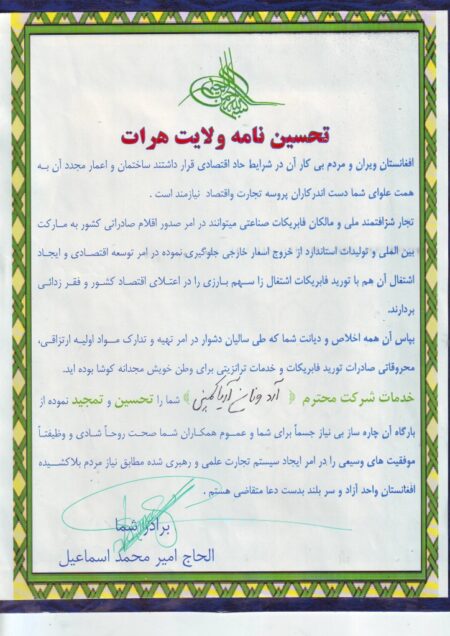 تحسین نامه ولایت هرات
افغانستان ویران و مردم بی کار آن در شرایط حاد اقتصادی قرار داشتند ساختمان و اعمار مجدد آن به
همت علوای شما دست اندرکاران پروسه تجارت واقتصاد نیازمند است .
تجار شزافتمند ملی و مالکان فابریکات صناعتی میتوانند در امر صدور اقلام صادراتی کشور به مارکت
بین المللی و تولیدات استاندازد از خروج اسعار خازجی جلوگیری نموده در امر توسعه اقتصادی و ایجاد
اشتغال آن هم با تورید فابریکات اشتغال زا سهم بارزی را در اعتلای اقتصاد کشور و فقر زدائی
بردارند.
بپاس آن همه اخلاص و دیانت شما که طی سالیان دشوار در امر تهیه و تدارک مواد اولیه ارتزاقی،
محروقاتی صادرات تورید فابریکات و خدمات ترانزیتی برای وطن خویش مجدانه کوشا بوده اید.
خدمات شرکت محترم ﴿ آرد ونان آریا کمپنی ﴾ شما را تحسین و تمجید نموده از
بارگاه آن چاره ساز بی نیاز جسماً برای شما و عموم همکاران شما صحت روحاً شادی و وظیفتاً
موفقیت های وسیعی را در امر ایجاد سیستم تجارت علمی و رهبری شده مطابق نیاز مردم بلاکشیده
افغانستان واحد آزاد و سر بلند بدست دعا متقاضی هستم .
برادر شما
الحاج امیر محمد اسماعیل